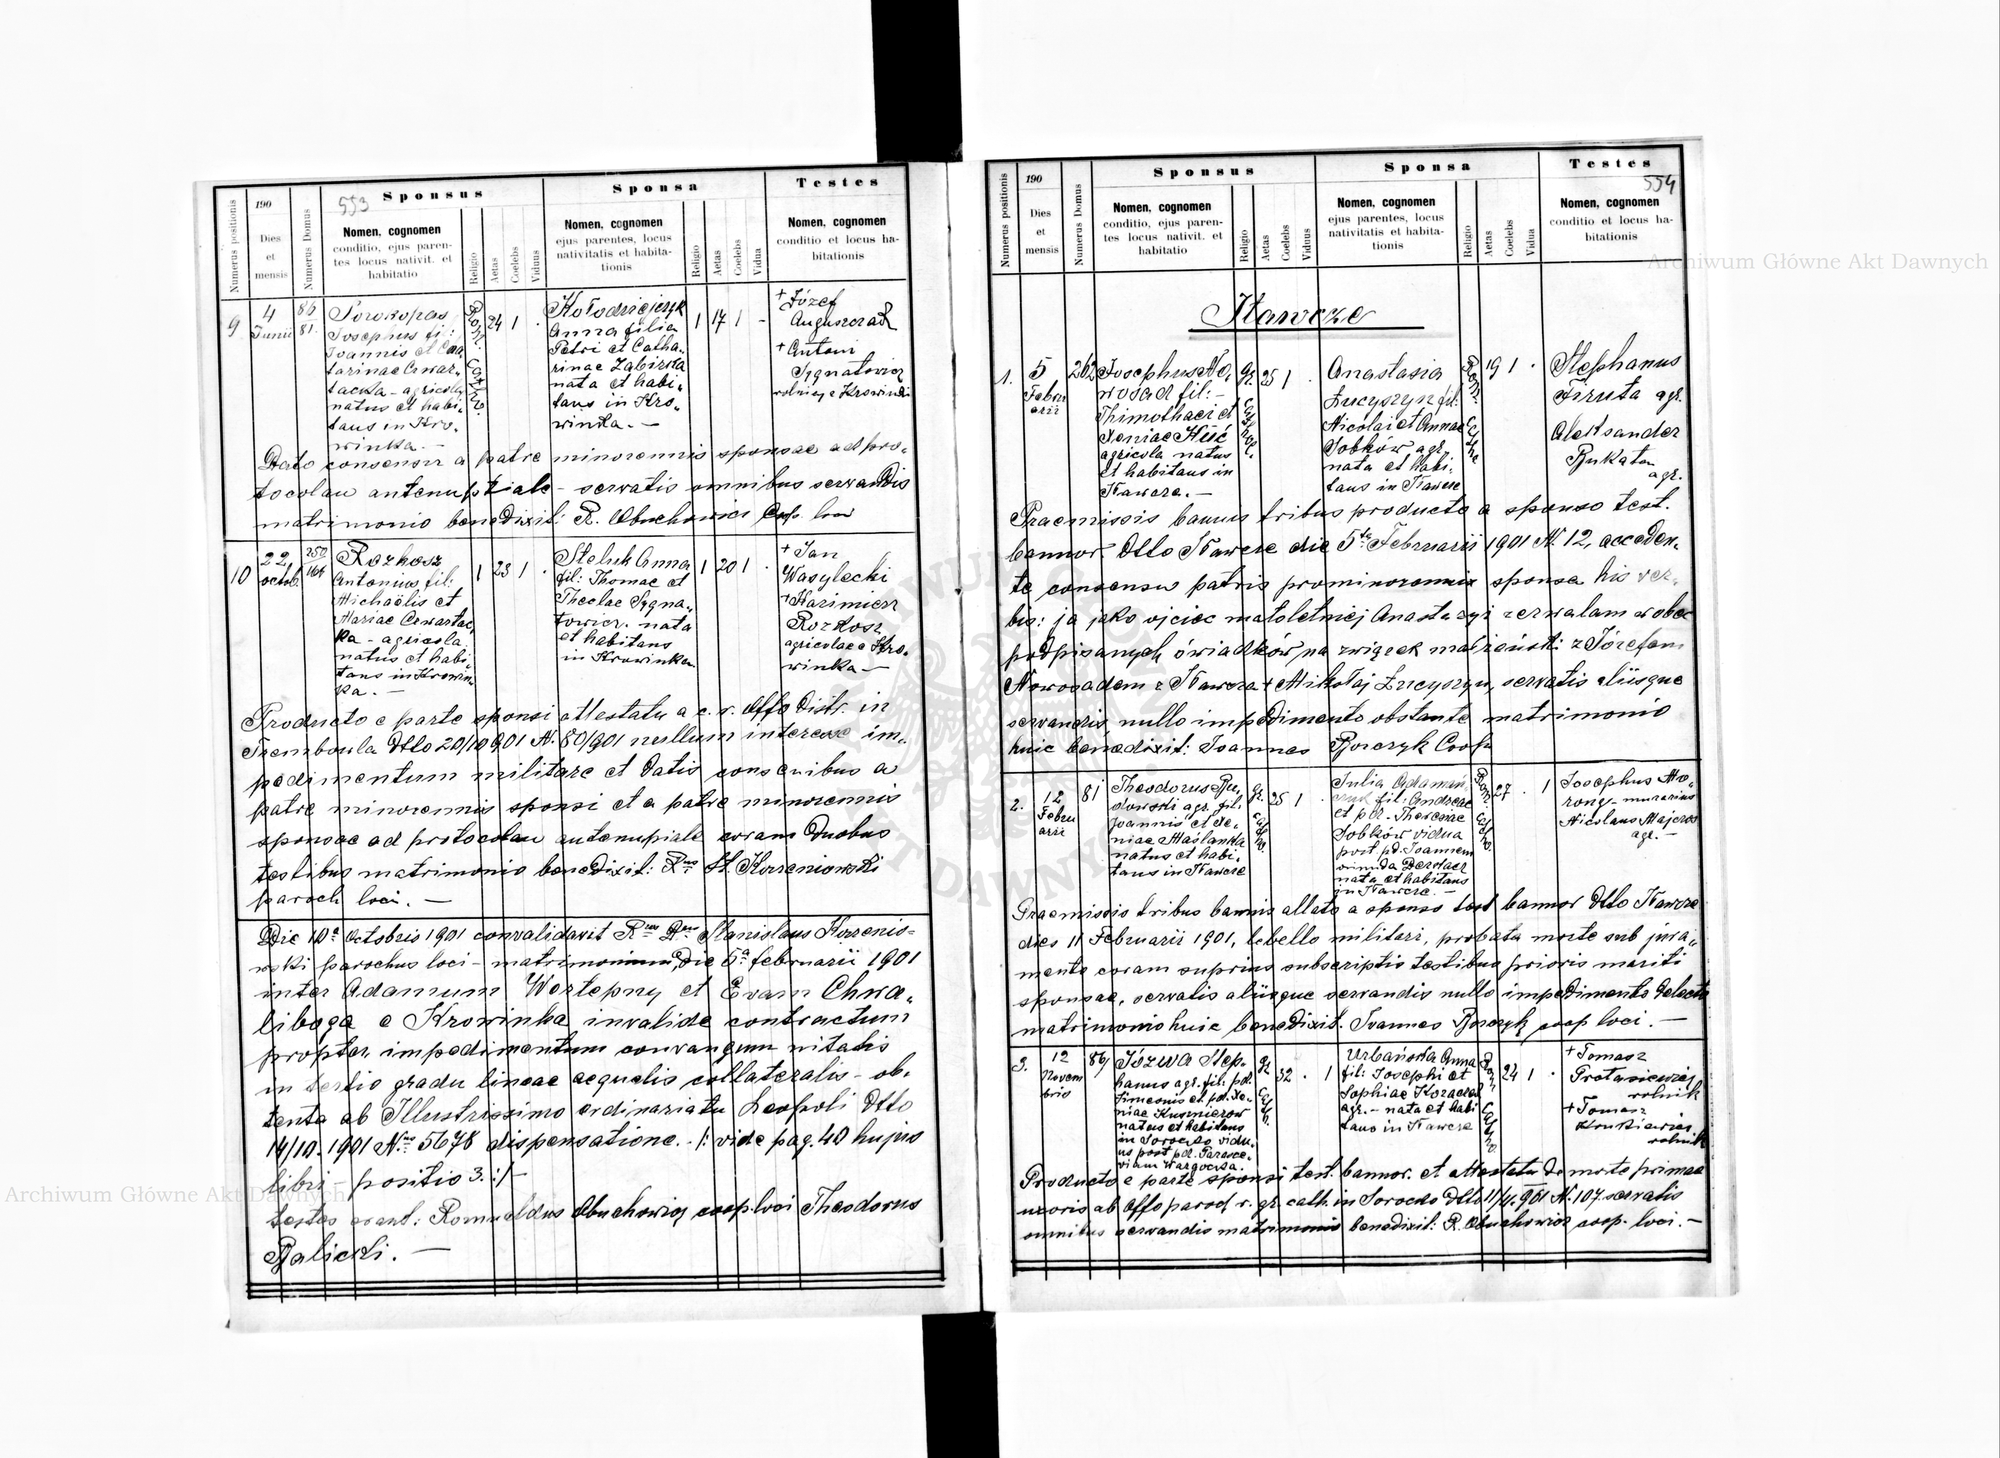 553
Numerus positionis
190
Dies
et
mensis
Numerus Domus
Sponsus
Nomen, cognomen
conditio, ejus paren-
tes locus nativit. et
habitatio
Religio
Aetas
Coelebs
Viduus
Sponsa
Nomen, cognomen
ejus parentes, locus
nativitatis et habita-
tionis
Religio
Aetas
Coelebs
Vidua
Testes
Nomen, cognomen
conditio et locus ha-
bitationis
9
4
Junii
86
81
Porokopas
Josephus fil:
Joannis et Cata
tarinae Czwar-
tacka - agricola
natus et habi-
tans in Kro-
winka. -
Rom. Cath.
24
1
Kołodziejczyk
Anna filia
Petri et Catha-
rinae Zabirska
nata et habi-
tans in Kro-
winka. -
1
17
1
-
+ Józef
Auguszczak
+ Antoni
Sygnatowicz
rolnicy z Krowinki
Dato consensu a patre minorennis sponsae ad pro-
tocolau antenuptiale - servatis omnibus servandis
matrimonio benedixit: R. Obuchowicz Coop. loci
10
22
octob.
250
164
Rozkosz
Antonius fil:
Michaëlis et
Mariae Czwartac-
ka - agricola
natus et habi-
tans in Krowin
ka. -
1
23
1
Steluk Anna
fil: Thomae et
Theclae Sygna-
towicz. nata
et habitans
in Krowinka
1
20
1
+ Jan
Wasylecki
+ Kazimierz
Rozkosz
agricolae e Kro-
winka -
Producto e parte sponsi attestatu a c. r. Offo Distr. in
Trembowla dtto 20/10 901 N. 80/901 nullum interesse im-
pedimentum militare et datis consensibus a
patre minorennis sponsi et a patre minorennis
sponsae ad protocolau antenupiale coram duobus
testibus matrimonio benedixit: Rms St. Korzeniowski
paroch loci. -
Die 10a Octobris 1901 convalidavit Rms Dms Stanislaus Korzenio-
wski parochus loci - matrimonium die 5a februarii 1901
inter Adamum Wortepny et Evam Chwa-
liboga e Krowinka invalide contractum
propter impedimentum consanguinitatis
in tertio gradu lineae aequalis collateralis - ob-
tenta ab Illustrissimo ordinariatu Leopoli dtto
14/10. 1901 Nro 5678 dispensatione. - /: vide pag. 40 hujus
libri - positio 3. :/-
testes erant: Romualdus Obuchowicz coop. loci Theodorus
Balicki. -
554
Numerus positionis
190
Dies
et
mensis
Numerus Domus
Sponsus
Nomen, cognomen
conditio, ejus paren-
tes locus nativit. et
habitatio
Religio
Aetas
Coelebs
Viduus
Sponsa
Nomen, cognomen
ejus parentes, locus
nativitatis et habita-
tionis
Religio
Aetas
Coelebs
Vidua
Testes
Nomen, cognomen
conditio et locus ha-
bitationis
Iławcze
1.
5
Febru
arii
262
Josephus No-
wosad fil: -
Thimothaei et
Xeniae Kść
agricola natus
et habitans in
Iławcze. -
gr. Cathol.
25
1
Anastasia
Łucyszyn fil:
Nicolai et Annae
Sobków agr.
nata et habi-
tans in Iławcze
Rom. Cath.
19
1
Stephanus
Firuta agr.
Aleksander
Bukata
agr.
Praemissis bannis tribus producto a sponso test.
bannor. dtto Iławcze die 5ta Februarii 1901 N. 12, acceden-
te consensu patris pro minorennis sponsa his ver-
bis: ja jako ojciec małoletniej Anastazyi zezwalam wobec
podpisanych świadków na związek małżeński z Józefem
Nowosadem z Iławcza + Mikołaj Łucyszyn, servatis aliisque
servandis, nullo impedimento obstante matrimonio
huic benedixit: Joannes Borczyk Coop.
2.
12
Febru
arii
81
Theodorus Bu-
dowski agr. fil:
Joannis et Xe-
niae Maślanka
natus et habi-
tans in Iławcze
gr. cath.
25
1
Julia Adamań
czuk fil: Andreae
et pd. Theresiae
Sobków vidua
post pd. Joannem
nata et habitans
in Iławcze. -
Rom. Cath.
27
1
Josephus Mo-
rong - murarius
Nicolaus Majeros
agr. -
Praemissis tribus bannis allato a sponso test bannor dtto Iławcze
dies 11 Februarii 1901, lebello militari, probata morte sub jura-
mento coram suprius subscriptis testibus prioris mariti
sponsae, servatis aliisque servandis nullo impedimento detecto
matrimonio huic benedixit. Joannes Borczyk coop loci. -
3.
12
Novem
bris
86
Józwa Step-
hanus agr. fil. pd.
Simeonis et pd. Xe-
niae Kusznierow
natus et habitans
in Sorocko vidu-
us post pd. Parasce-
viam Wargocka.
gr. Cath.
32
1
Urbańska Anna
fil: Josephi et
Sophiae Kozaczek
agr. - nata et habi
tans in Iławcze
Rom. Cath.
24
1
+ Tomasz
Protasiewicz
rolnik
+ Tomasz
Żukiewicz
rolnik
Producto e parte sponsi test. bannor. et attestatu de morte primae
uxoris ab Offo paroch r. gr. cath. in Sorocko dtto 11/4. 901 N. 107. servatis
omnibus servandis matrimonio benedixit: R. Obuchowicz coop. loci. -
Archiwum Główne Akt Dawnych
Archiwum Główne Akt Dawnych